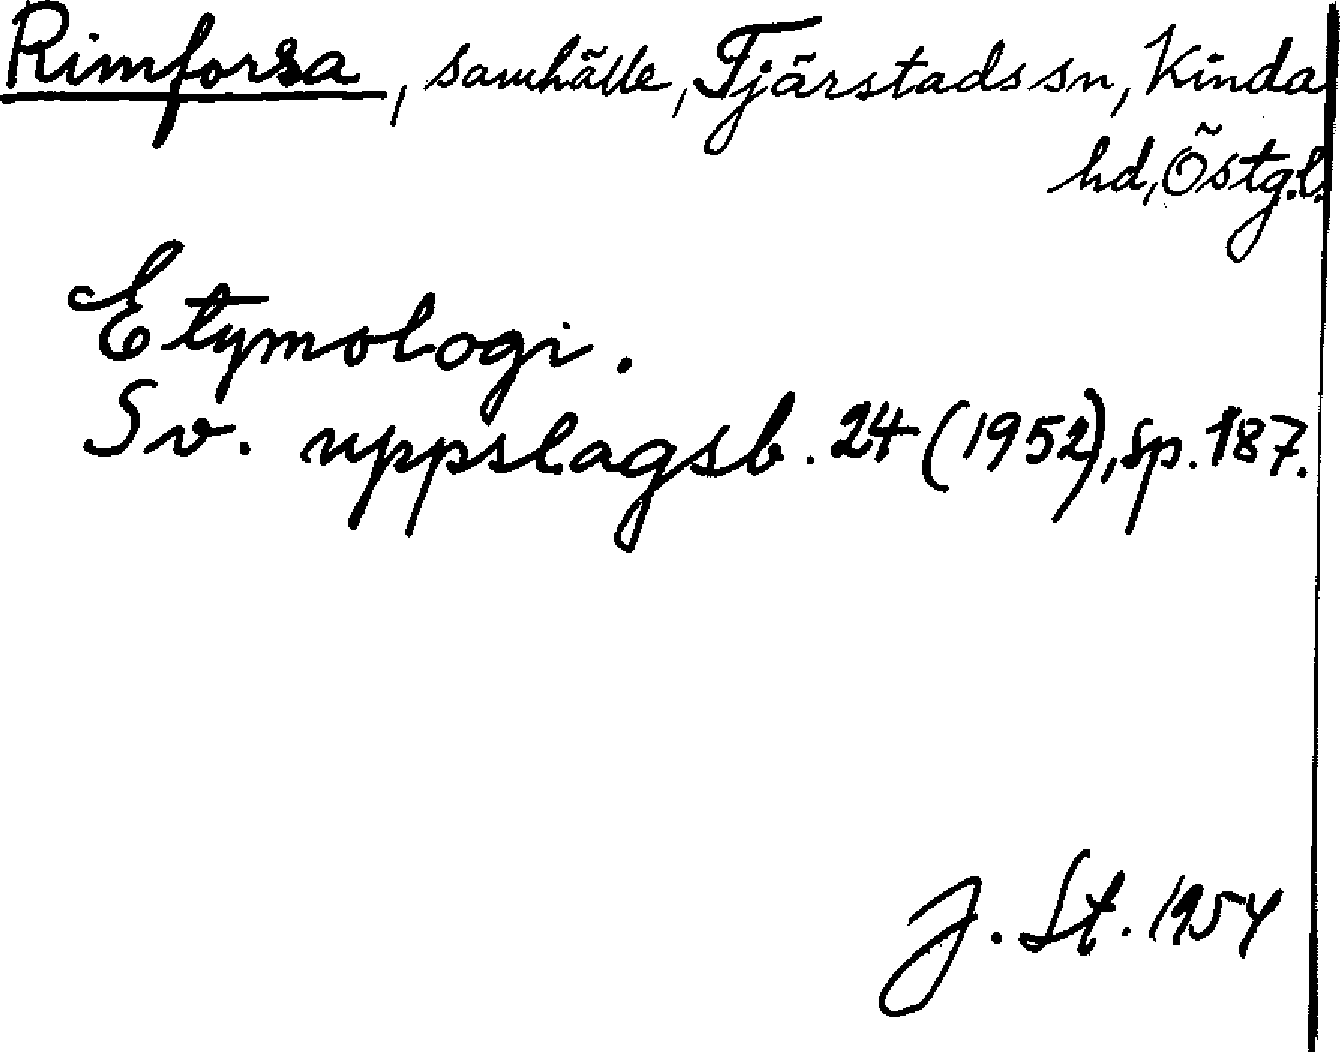 Rimforsa, samhälle, Tjärstads sn, Kinda
hd, Östg.l.
Etymologi.
Sv. uppslagsb. 24 (1952), sp. 187.
J. St. 1954